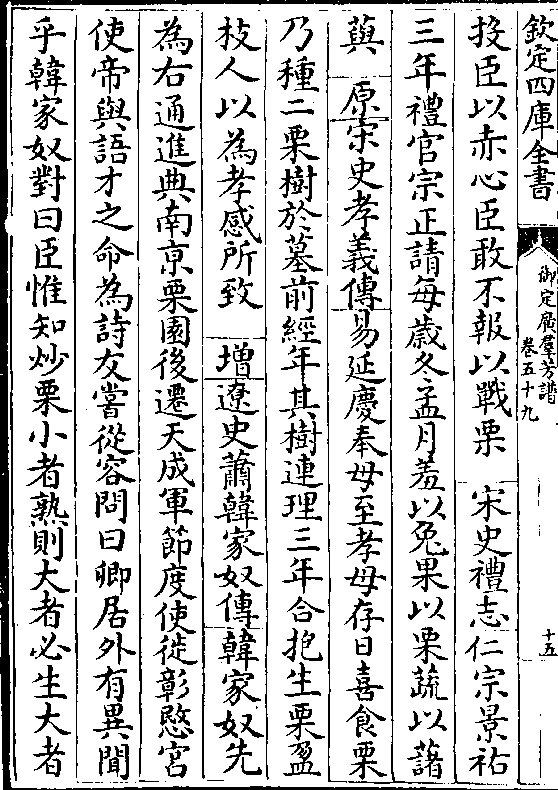 欽定四庫全書
御定廣羣芳譜
卷五十九
十五
投臣以赤心臣敢不報以戰栗　宋史禮志仁宗景祐
三年禮官宗正請每歲冬孟月羞以兔果以栗蔬以藷
藇　原宋史孝義傳易延慶奉母至孝母存日喜食栗
乃種二栗樹於墓前經年其樹連理三年合抱生栗盈
枝人以為孝感所致　增遼史蕭韓家奴傳韓家奴先
為右通進典南京栗園後遷天成軍節度使徙彰愍宮
使帝與語才之命為詩友嘗從容問曰卿居外有異聞
乎韓家奴對曰臣惟知炒栗小者熟則大者必生大者